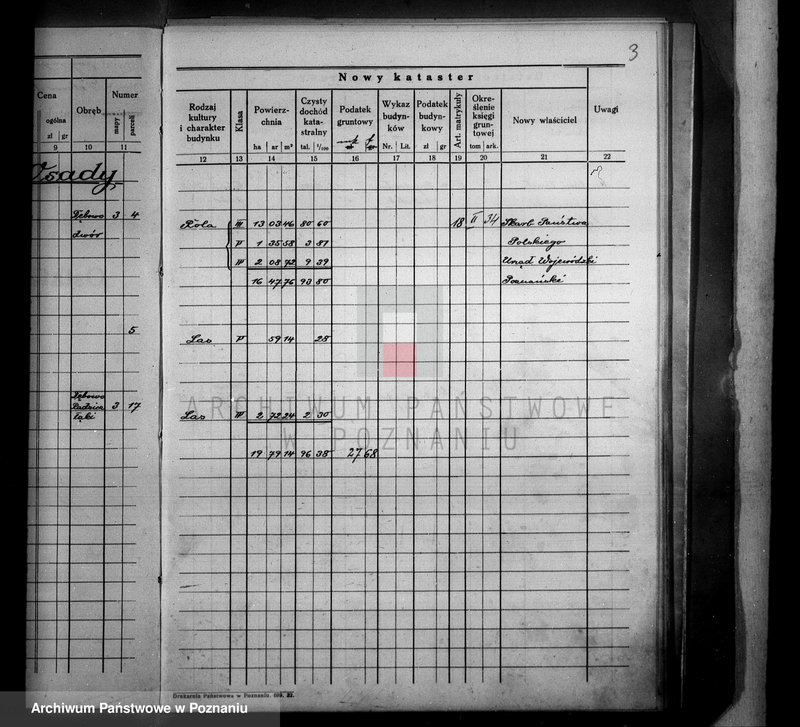 3
Nowy kataster
Cena
Obręb
Numer
ogólna
mapy
parceli
zł gr
9 10 11
Rodzaj kultury i charakter budynku
Klasa
Powierzchnia
ha ar m²
Czysty dochód katastralny
tal. 1/100
Podatek gruntowy
Wykaz budynków
Nr. Lit.
Podatek budynkowy
zł gr
Art. matrykuły
Określenie księgi gruntowej
tom ark.
Nowy właściciel
Uwagi
12 13 14 15 16 17 18 19 20 21 22
Osady
Dębowo 3 4
dwór
Rola III 13 03 46 80 60 18 II 34 Skarb Państwa
V 1 35 58 3 81 Polskiego
IV 2 08 72 9 39 Urząd Wojewódzki
16 47 76 93 80 Poznański
5
Las V 59 14 28
Dębowo
3 17
łąki
Las IV 2 72 24 2 30
19 79 14 96 38 27 68
ARCHIWUM PAŃSTWOWE
W POZNANIU
Drukarnia Państwowa w Poznaniu.
Archiwum Państwowe w Poznaniu